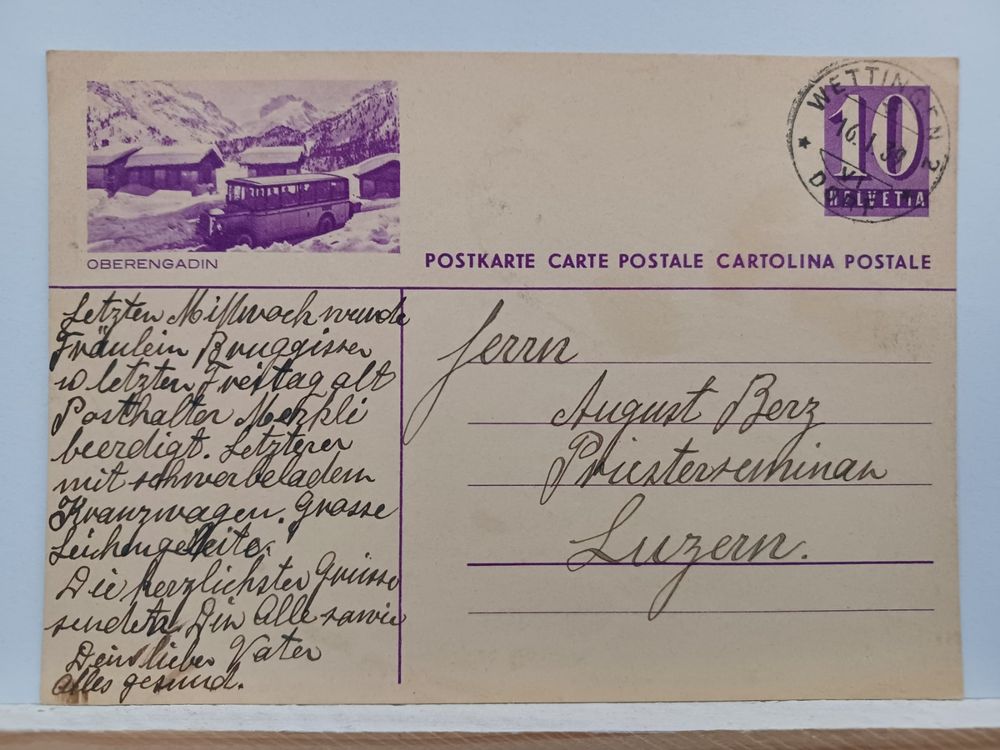 OBERENGADIN
WETTINGEN 2
16.1.39
VI
DORF
10
HELVETIA
POSTKARTE CARTE POSTALE CARTOLINA POSTALE
Letzten Mittwoch wurde
Fräulein Bruggisser
u letzten Freitag alt
Posthalter Merkli
beerdigt. Letzterer
mit schwerbeladem
Kranzwagen. Grosse
Leichengeleite.
Die herzlichsten Grüsse
senden Dir Alle sowie
Dein lieber Vater
Alles gesund.
Herrn
August Berz
Priesterseminar
Luzern.